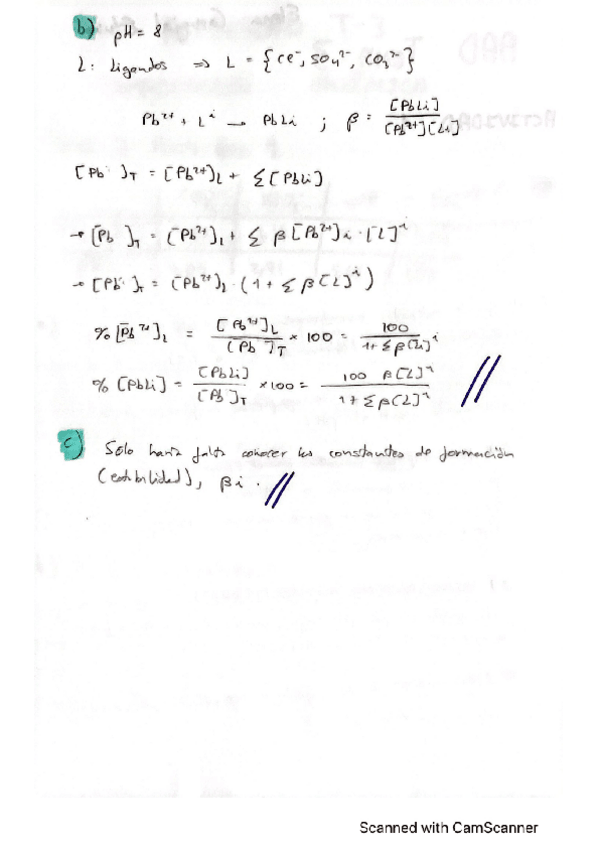 b) pH = 8
L: Ligandos ⇒ L = {Cl⁻, SO₄²⁻, CO₃²⁻}
Pb²⁺ + Lⁱ → PbLi ; β = [PbLi] / [Pb²⁺][Li]
[Pb]_T = [Pb²⁺]_L + Σ[PbLi]
→ [Pb]_T = [Pb²⁺]_L + Σ β[Pb²⁺]i · [L]ⁱ
→ [Pb]_T = [Pb²⁺]_L · (1 + Σ β[L]ⁱ)
% [Pb²⁺]_L = [Pb²⁺]_L / [Pb]_T × 100 = 100 / 1 + Σ β[L]ⁱ
% [PbLi] = [PbLi] / [Pb]_T × 100 = 100 β[L]ⁱ / 1 + Σ β[L]ⁱ
c) Solo haría falta conocer las constantes de formación
(estabilidad), βi.
Scanned with CamScanner